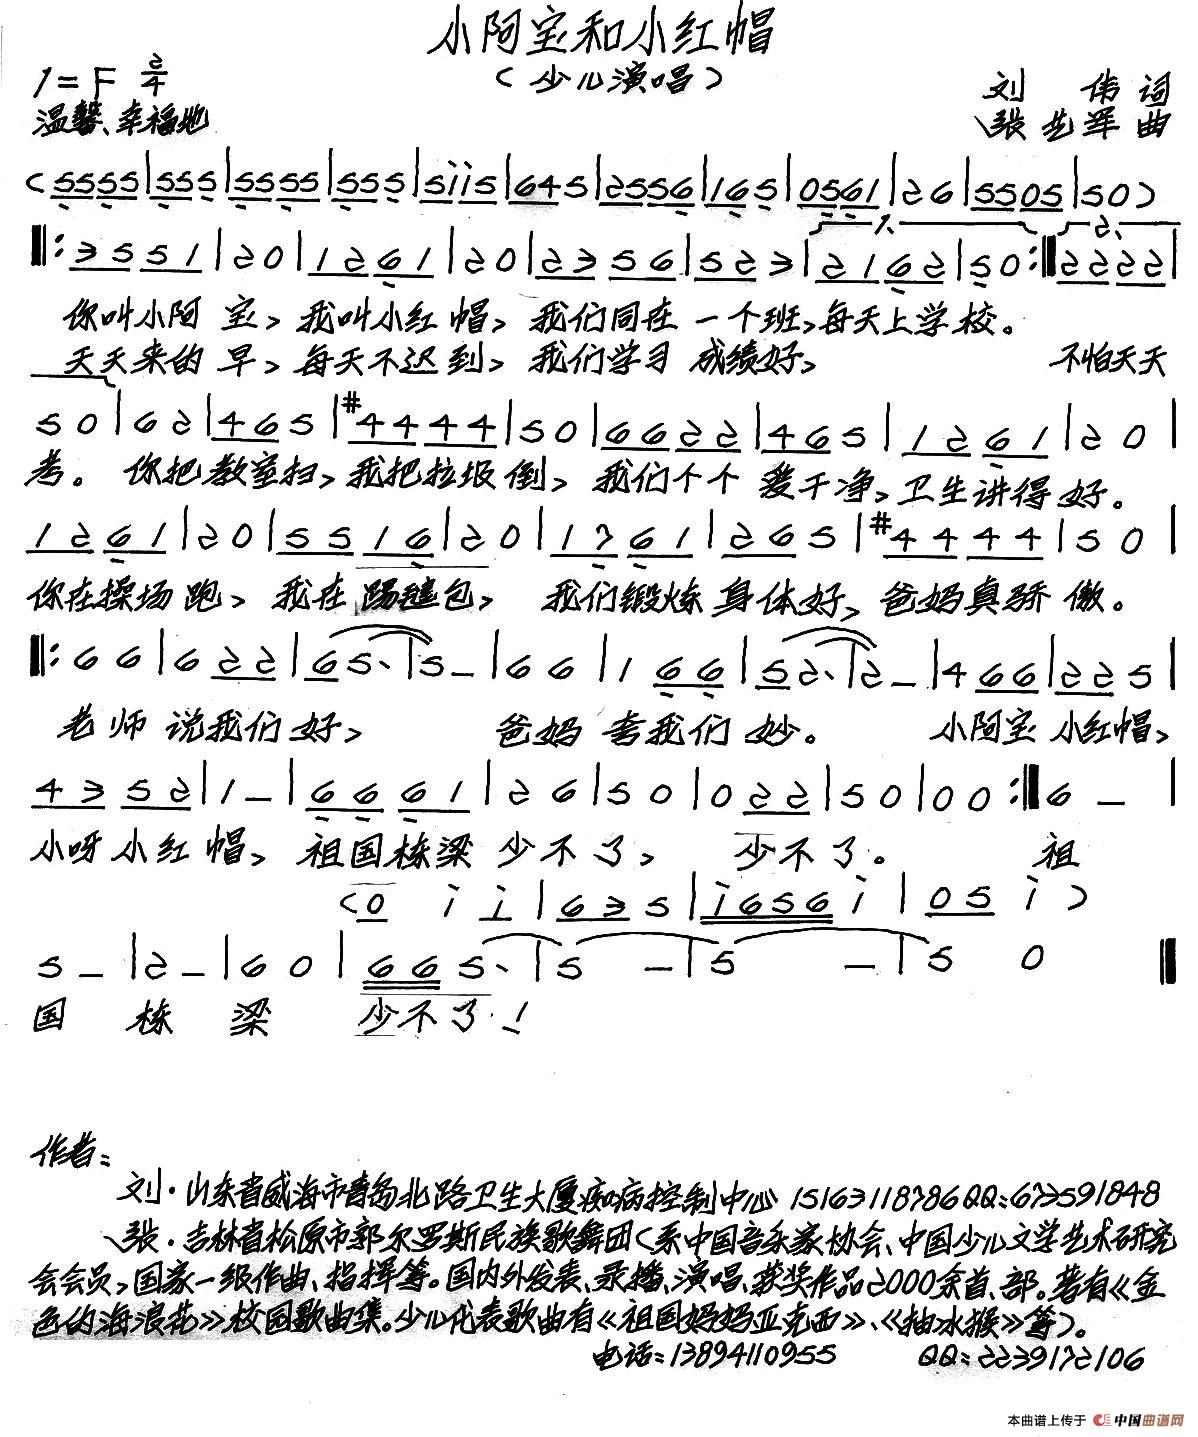 小阿宝和小红帽
(少儿演唱)
1=F 2/4
刘 伟 词
温馨、幸福地
张艺军 曲
(5555|555|5555|555|5ii5|645|2556|165|0561|26|5505|50)
1. 2.
‖:3551|20|1261|20|2356|523|2162|50:‖2222|
你叫小阿宝,我叫小红帽,我们同在一个班,每天上学校。
天天来的早,每天不迟到,我们学习成绩好, 不怕天天
50|62|465|#4444|50|6622|465|1261|20|
考。你把教室扫,我把垃圾倒,我们个个爱干净,卫生讲得好。
1261|20|5516|20|1761|265|#4444|50|
你在操场跑,我在踢毽包,我们锻炼身体好,爸妈真骄傲。
‖:66|622|65·|5-|66|166|52·|2-|466|225|
老师说我们好, 爸妈夸我们妙。 小阿宝小红帽,
4352|1-|6661|26|50|022|50|00:‖6-|
小呀小红帽,祖国栋梁少不了, 少不了。 祖
(0 i i|635|i656i|05 i)
5-|2-|60|665·|5-|5-|5 0‖
国 栋 梁 少不了!
作者:
刘·山东省威海市青岛北路卫生大厦疾病控制中心 15163118786 QQ:673591848
张·吉林省松原市郭尔罗斯民族歌舞团(系中国音乐家协会、中国少儿文学艺术研究
会会员,国家一级作曲、指挥等。国内外发表、录播、演唱、获奖作品2000余首、部。著有《金
色的海浪花》校园歌曲集。少儿代表歌曲有《祖国妈妈亚克西》、《抽水猴》等)。
电话:13894110955 QQ:2239172106
本曲谱上传于 中国曲谱网